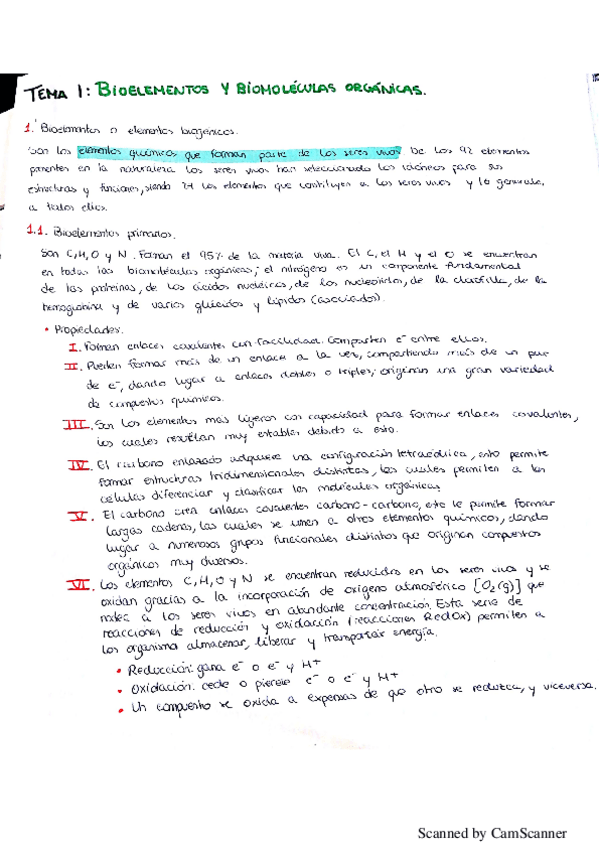 TEMA 1: BIOELEMENTOS Y BIOMOLÉCULAS ORGÁNICAS.
1. Bioelementos o elementos biogénicos.
Son los elementos químicos que forman parte de los seres vivos. De los 92 elementos
presentes en la naturaleza los seres vivos han seleccionado los idóneos para sus
estructuras y funciones, siendo 24 los elementos que constituyen a los seres vivos y lo
a todos ellos.
1.1. Bioelementos primarios.
Son C, H, O y N. Forman el 95% de la materia viva. El C, el H y el O se encuentran
en todas las biomoléculas orgánicas; el nitrógeno es un componente fundamental
de las proteínas, de los ácidos nucleicos, de los nucleótidos, de la clorofila, de la
hemoglobina y de varios glúcidos y lípidos (asociados).
• Propiedades.
I. Forman enlaces covalentes con facilidad. Comparten e⁻ entre ellos.
II. Pueden formar más de un enlace a la vez, compartiendo más de un par
de e⁻, dando lugar a enlaces dobles o triples; originan una gran variedad
de compuestos químicos.
III. Son los elementos más ligeros con capacidad para formar enlaces covalentes,
los cuales resultan muy estables debido a esto.
IV. El carbono enlazado adquiere una configuración tetraédrica, esto permite
formar estructuras tridimensionales distintas, las cuales permiten a las
células diferenciar y clasificar las moléculas orgánicas.
V. El carbono crea enlaces covalentes carbono-carbono, esto le permite formar
largas cadenas, las cuales se unen a otros elementos químicos, dando
lugar a numerosos grupos funcionales distintos que originan compuestos
orgánicos muy diversos.
VI. Los elementos C, H, O y N se encuentran reducidos en los seres vivos y se
oxidan gracias a la incorporación de oxígeno atmosférico [O₂(g)] que
rodea a los seres vivos en abundante concentración. Esta serie de
reacciones de reducción y oxidación (reacciones RedOx) permiten a
los organismo almacenar, liberar y transportar energía.
• Reducción: gana e⁻ o e⁻ y H⁺
• Oxidación: cede o pierde e⁻ o e⁻ y H⁺
• Un compuesto se oxida a expensas de que otro se reduzca, y viceversa.
Scanned by CamScanner